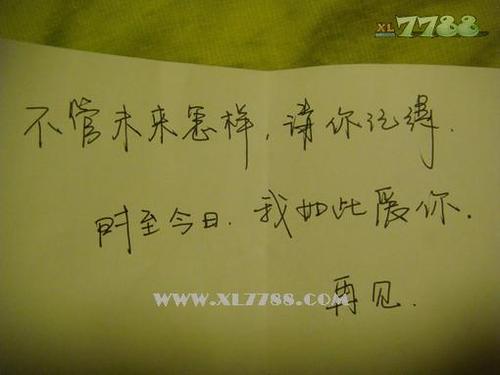 XL7788
不管未来怎样，请你记得.
时至今日.我如此爱你.
WWW.XL7788.COM
再见.